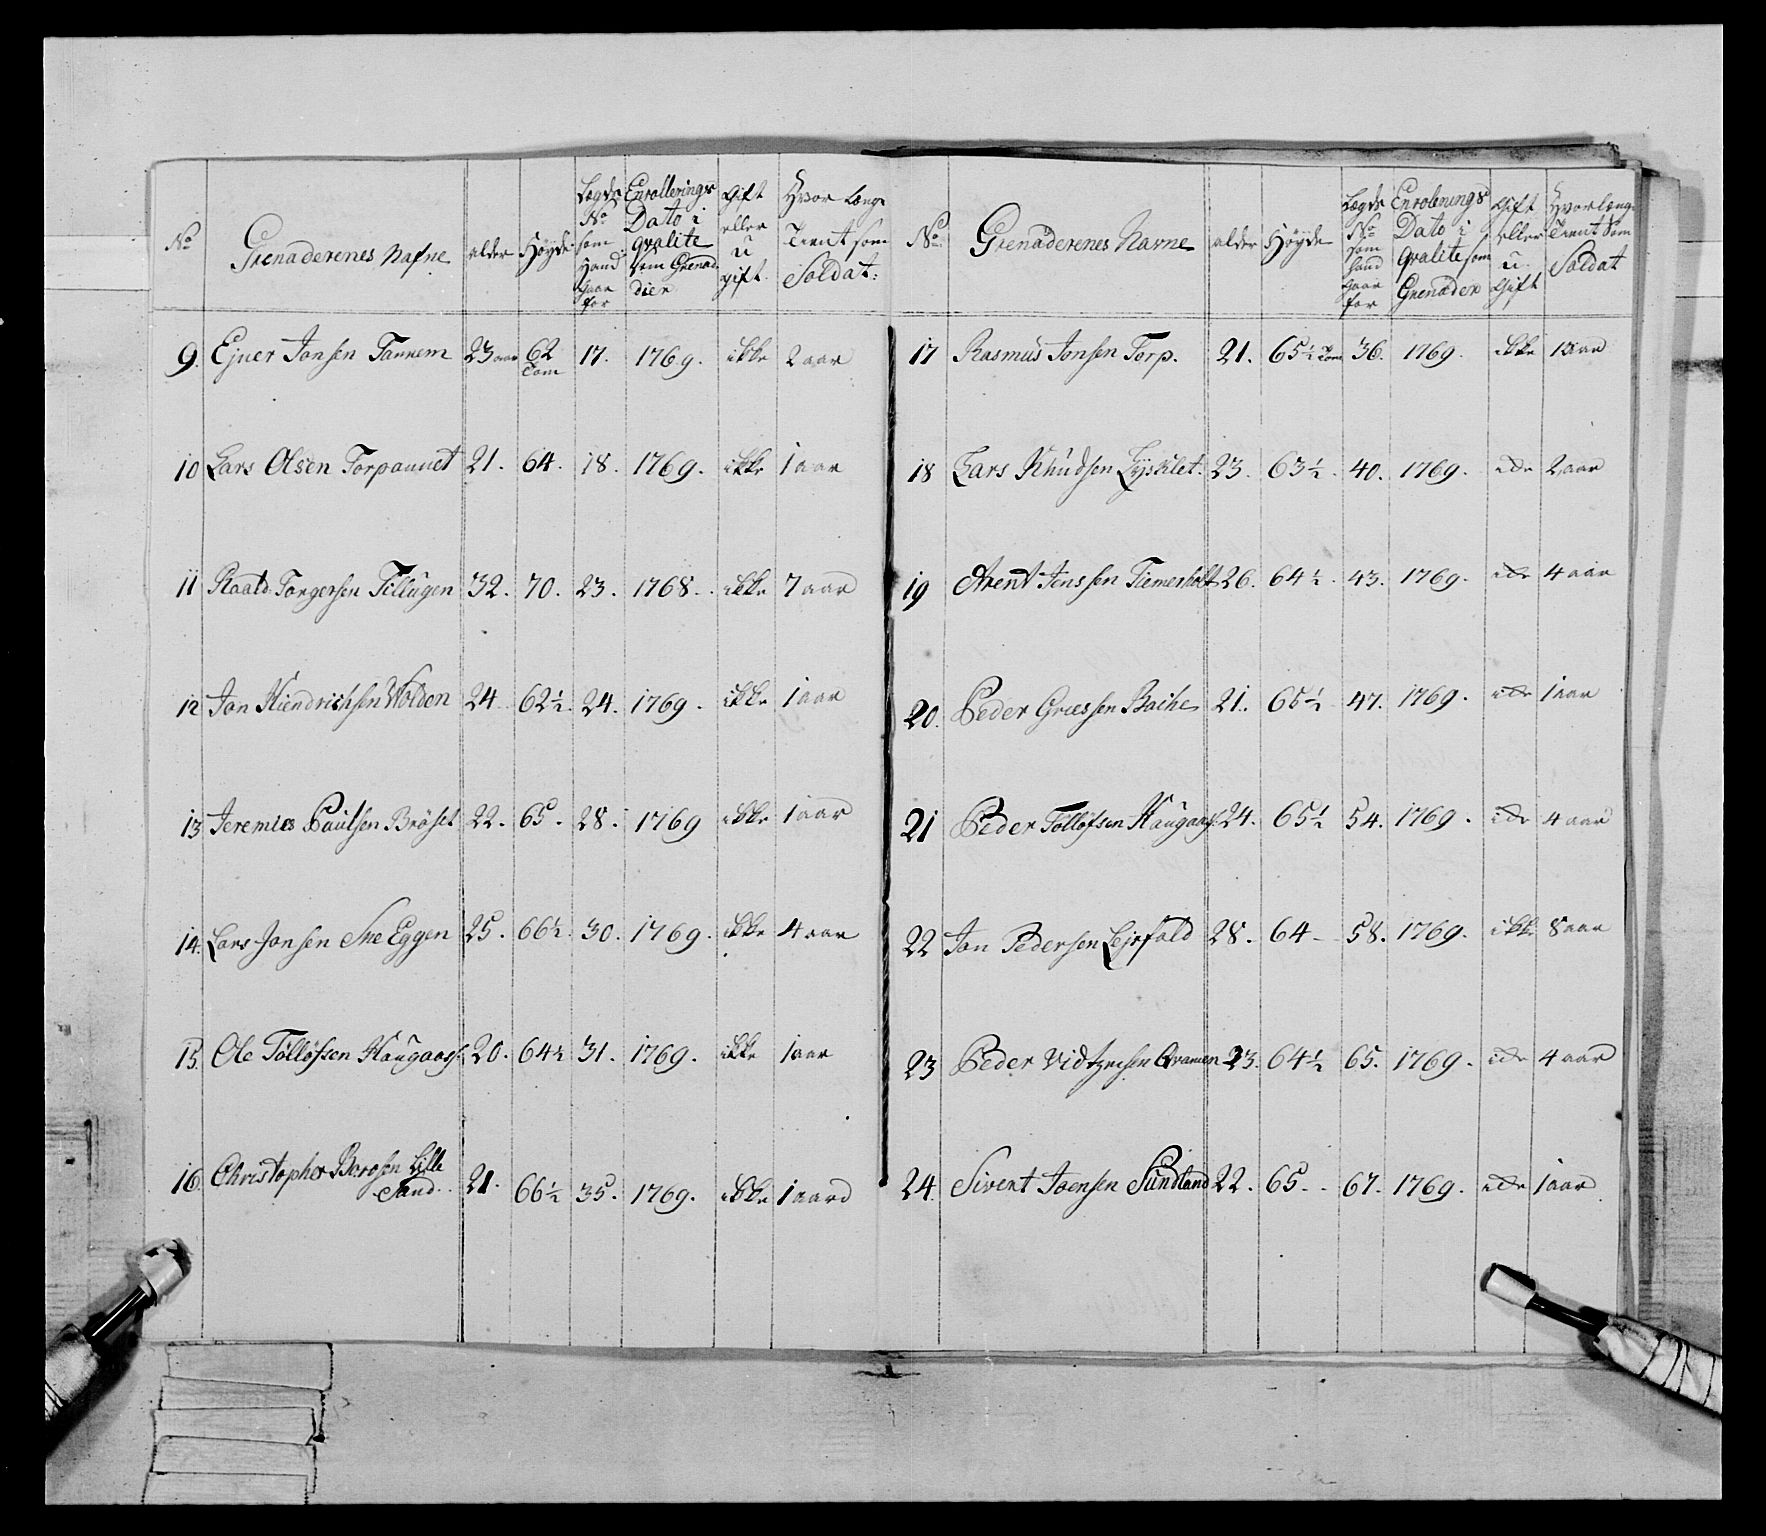 No Grenaderenes Nafne alder Høyde Lægds No som Hand gaar for Enrollerings Dato i qvalite som Grenadier Gift eller u gift Hvor Længe Tient som Soldat:
9. Ejner Jonsen Tannem 23 aar 62 Tom 17. 1769. ikke 2 aar
10 Lars Olsen Torpaunet 21. 64. 18. 1769. ikke 1 aar
11 Roald Torgersen Tillugen 32. 70. 23. 1768. ikke 7 aar
12 Jon Hendrichsen Wolden 24 62½. 24. 1769. ikke 1 aar
13 Jeremies Paulsen Brøset 22. 65. 28. 1769 ikke 1 aar
14. Lars Jonsen Sne Eggen 25. 66½. 30. 1769. ikke 4 aar
15. Ole Tølløfsen Haugaas 20. 64½ 31. 1769. ikke 1 aar
16. Christopher Borosen Lille
Sand. 21. 66½ 35. 1769. ikke 1 aar
No Grenaderenes Navne alder Høyde Lægds No som hand gaar for Enrolerings Dato i qvalite som Grenader Gift eller u. Gift Hvorlænge Tient Som Soldat
17 Rasmus Jonsen Torp. 21. 65½ Tom 36. 1769. ikke 1 aar
18 Lars Khudsen Lysklet. 23. 63½ 40. 1769. ide 2 aar
19 Arent Jenssen Tiemerholt 26. 64½. 43. 1769. ide 4 aar
20. Peder Græssen Bache 21. 65½ 47. 1769. ide 1 aar
21 Peder Tølløfsen Haugaas 24. 65½ 54. 1769. ide 4 aar
22 Jon Pedersen Lejrfald 28. 64 58. 1769. ikke 8 aar
23 Peder 23. 64½ 65. 1769. ide 4 aar
24. Sivert Joensen Sundland 22. 65 67. 1769. ide 1 aar